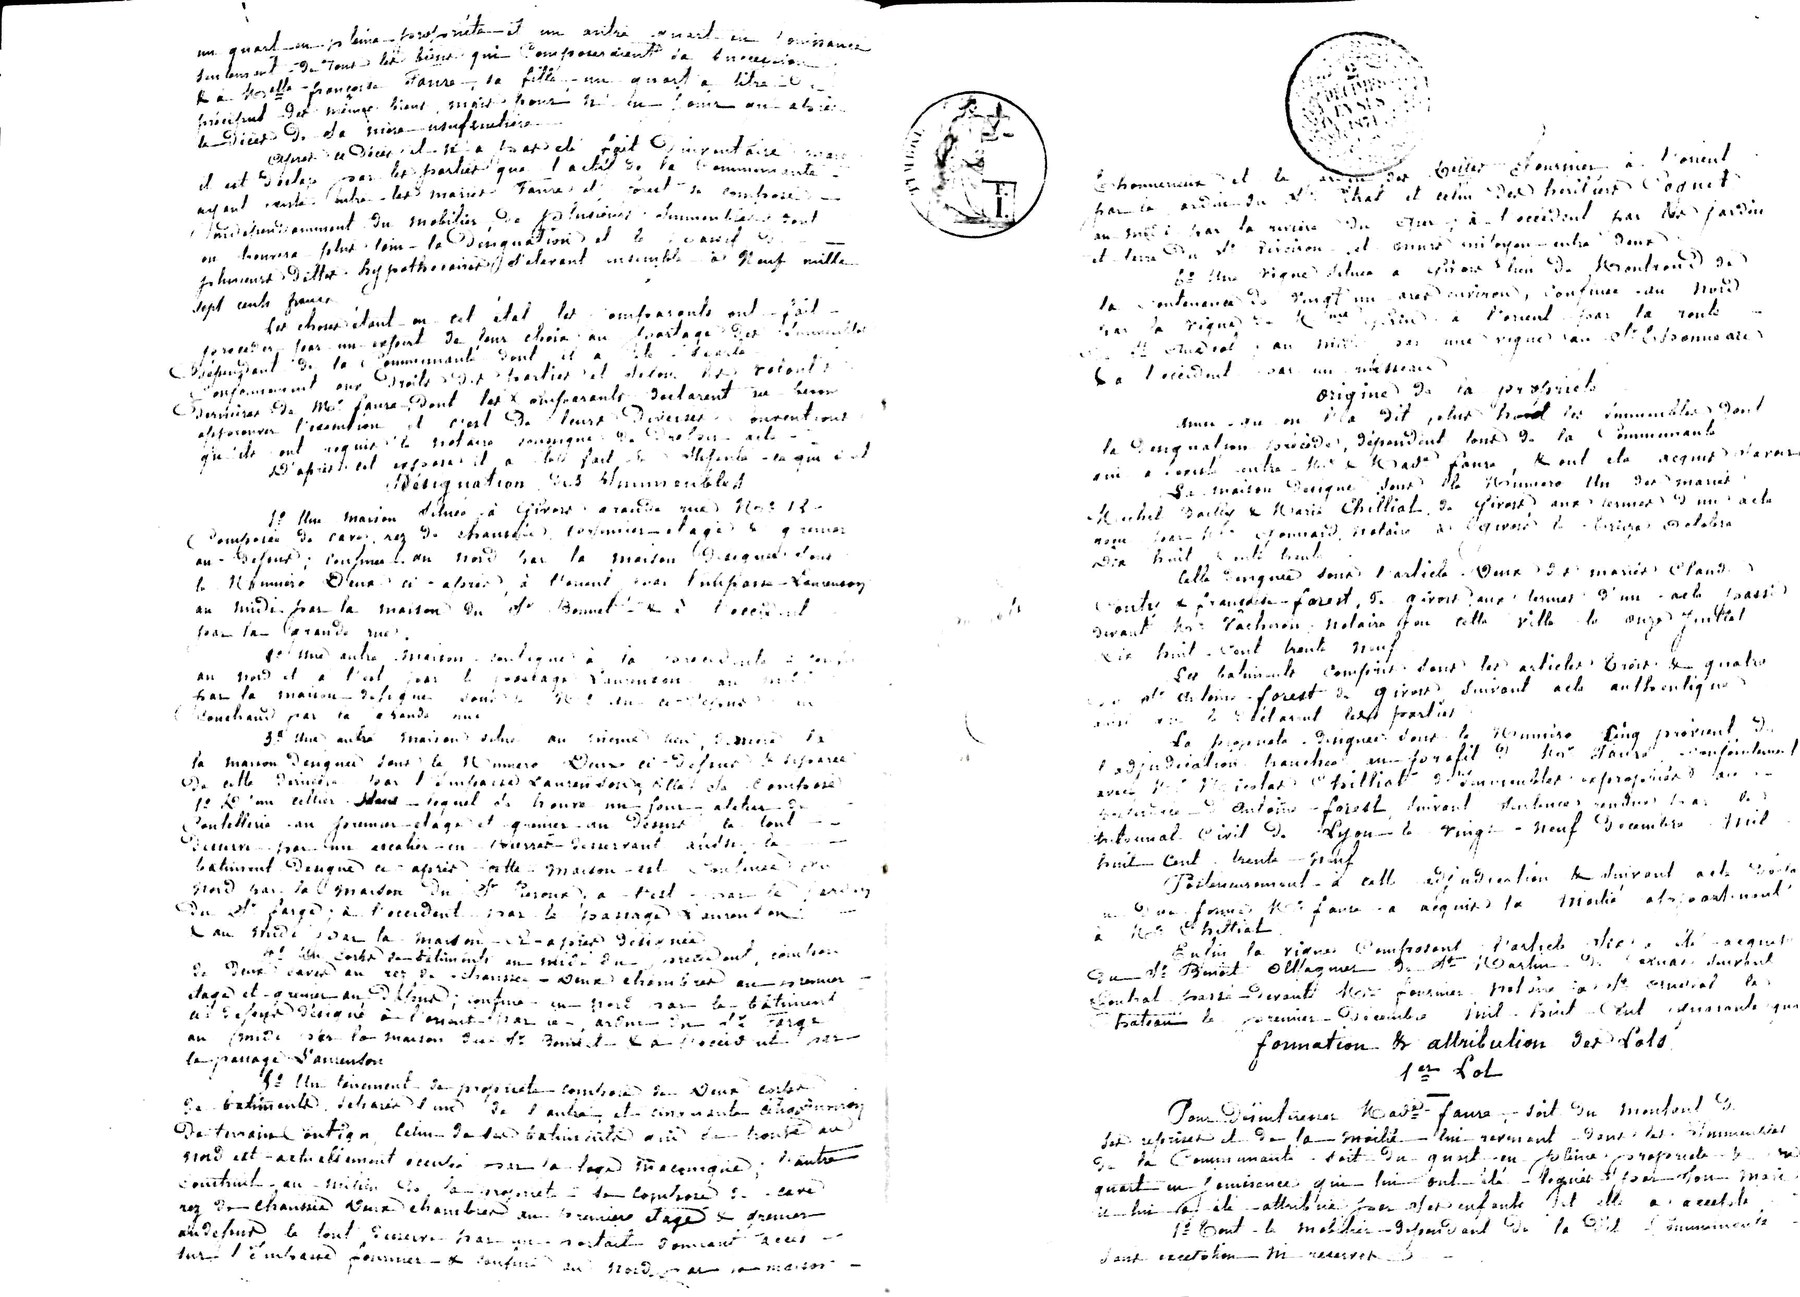 un quart en pleine propriété et un autre quart en jouissance
seulement de tous les biens qui composeraient sa succession
& à Melle françoise Faure, sa fille, un quart à titre de
préciput des mêmes biens, mais pour n'en jouir qu'après
le Décès de sa mère usufruitière
Après ce Décès il n'a pas été fait d'inventaire mais
il est déclaré par les parties que l'actif de la Communauté
ayant existé entre les mariés Faure et Forest se compose
indépendamment du mobilier, de plusieurs Immeubles dont
on trouvera plus loin la Désignation et le passif de
plusieurs dettes hypothécaires s'élevant ensemble à Neuf mille
sept cents francs
Les choses étant en cet état, les comparants ont fait
procéder par un expert de leur choix au partage des Immeubles
dépendant de la Communauté dont il a été parlé
Conformément aux droits des parties et selon les volontés
dernières de Mr faure, dont les Comparants déclarent
approuver l'exécution et c'est de leurs diverses conventions
qu'ils ont requis le notaire soussigné de dresser acte
D'après cet exposé il a été fait
Désignation des Immeubles
1º Une maison située à Givors grande rue Nº 12
Composée de cave, rez de chaussée, premier étage & grenier
au-dessus; confinée au nord par la maison Désignée sous
le Numéro Deux ci-après, à l'orient par l'impasse Laurenson
au midi par la maison du Sr Bonnet & à l'occident
par la Grande rue.
2º Une autre maison contiguë à la précédente
au nord et à l'est par le passage Laurenson au midi
par la maison désignée sous le Nº 1 ci-dessus
Couchant par la grande rue
3º Une autre maison située au même lieu, derrière
la maison désignée sous le Numéro Deux ci-dessus & séparée
de cette dernière par l'impasse Laurenson; elle se Compose
1º D'un cellier dans lequel se trouve un four, atelier de
Coutellerie au premier étage et grenier au dessus le tout
desservi par un escalier en pierres desservant aussi le
bâtiment désigné ci-après cette maison est Confinée au
nord par la maison du Sr Peroux, à l'est par le jardin
du Sr farge; à l'occident par le passage Laurenson
& au midi par la maison ci-après désignée
4º Un corps de bâtiments au midi du précédent, composé
de Deux caves au rez de chaussée Deux chambres au premier
étage et grenier au Dessus; confiné au nord par le bâtiment
ci-dessus désigné à l'orient par le jardin du Sr Farge
au midi par la maison du Sr Bonnet & à l'occident par
le passage Laurenson
5º Un tènement de propriété composé de Deux corps
de bâtiments, séparés l'un de l'autre, et cinquante
de terrain Contigu, Celui de ses bâtiments qui se trouve au
nord est actuellement occupé par la loge maçonnique; l'autre
construit au milieu de la propriété se compose de cave
rez de chaussée Deux chambres au premier étage & grenier
au dessus le tout desservi par un portail donnant accès
sur l'impasse fournier & confiné au Nord par la maison
TIMBRE
2 DÉCIMES
EN SUS
1871
Thonnerieux et le jardin des Sieurs Fournier à l'orient
par le jardin du Sr Prat et celui des héritiers Coquet
au midi par la rivière du Gier; à l'occident par les jardin
et terre du Sr et mur mitoyen entre deux
6º Une vigne située à Givors lieu de Montrond de
la Contenance de vingt un ares environ, Confinée au Nord
par la vigne de Mme à l'orient par la route
de St Andéol au midi par une vigne au Sr Thonnerieux
& à l'occident par un ruisseau
Origine de la propriété
Ainsi qu'on l'a dit plus haut les immeubles dont
la Désignation précède, dépendent tous de la Communauté
qui a existé entre Mr & Made Faure, & ont été acquis savoir
La maison désignée sous le Numéro Un des mariés
Michel Bailly & Marie Chilliat, de Givors, aux termes d'un acte
reçu par Me Gonnard, notaire à Givors le treize octobre
Dix huit cent trente
Celle désignée sous l'article Deux des mariés Claude
Contry & françoise forest, de Givors aux termes d'un acte passé
devant Me Vacheron, notaire en cette ville le onze Juillet
dix huit cent trente neuf
Les bâtiments compris sous les articles Trois & quatre
du Sr Antoine forest de Givors suivant acte authentique
ainsi que le déclarent les parties
La propriété désignée sous le Numéro Cinq provient de
l'adjudication tranchée au profit de Mr Faure conjointement
avec Mr Nicolas Chilliat d'immeubles expropriés au
préjudice d'Antoine forest, suivant sentence rendue par le
tribunal Civil de Lyon le vingt neuf Décembre Mil
huit cent trente neuf
Postérieurement à cette adjudication & suivant acte
en due forme Mr faure a acquis la moitié appartenant
à Mr Chilliat
Enfin la vigne Composant l'article six a été acquise
du Sr Benoit Ollagnier de St Martin de Cornas suivant
Contrat passé devant Me fournier Notaire à St Andéol le
château le premier Décembre mil huit Cent quarante
formation & attribution des Lots
1er Lot
Pour Désintéresser Made faure, soit du montant de
ses reprises et de la moitié lui revenant dans les immeubles
de la Communauté soit du quart en pleine propriété &
quart en jouissance qui lui ont été légués par son mari
il lui a été attribué par ses enfants et elle a accepté
1º Tout le mobilier dépendant de la dite Communauté
sans exception ni réserve